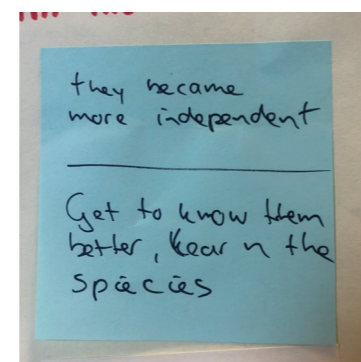 they became
more independent
Get to know them
better, learn the
species